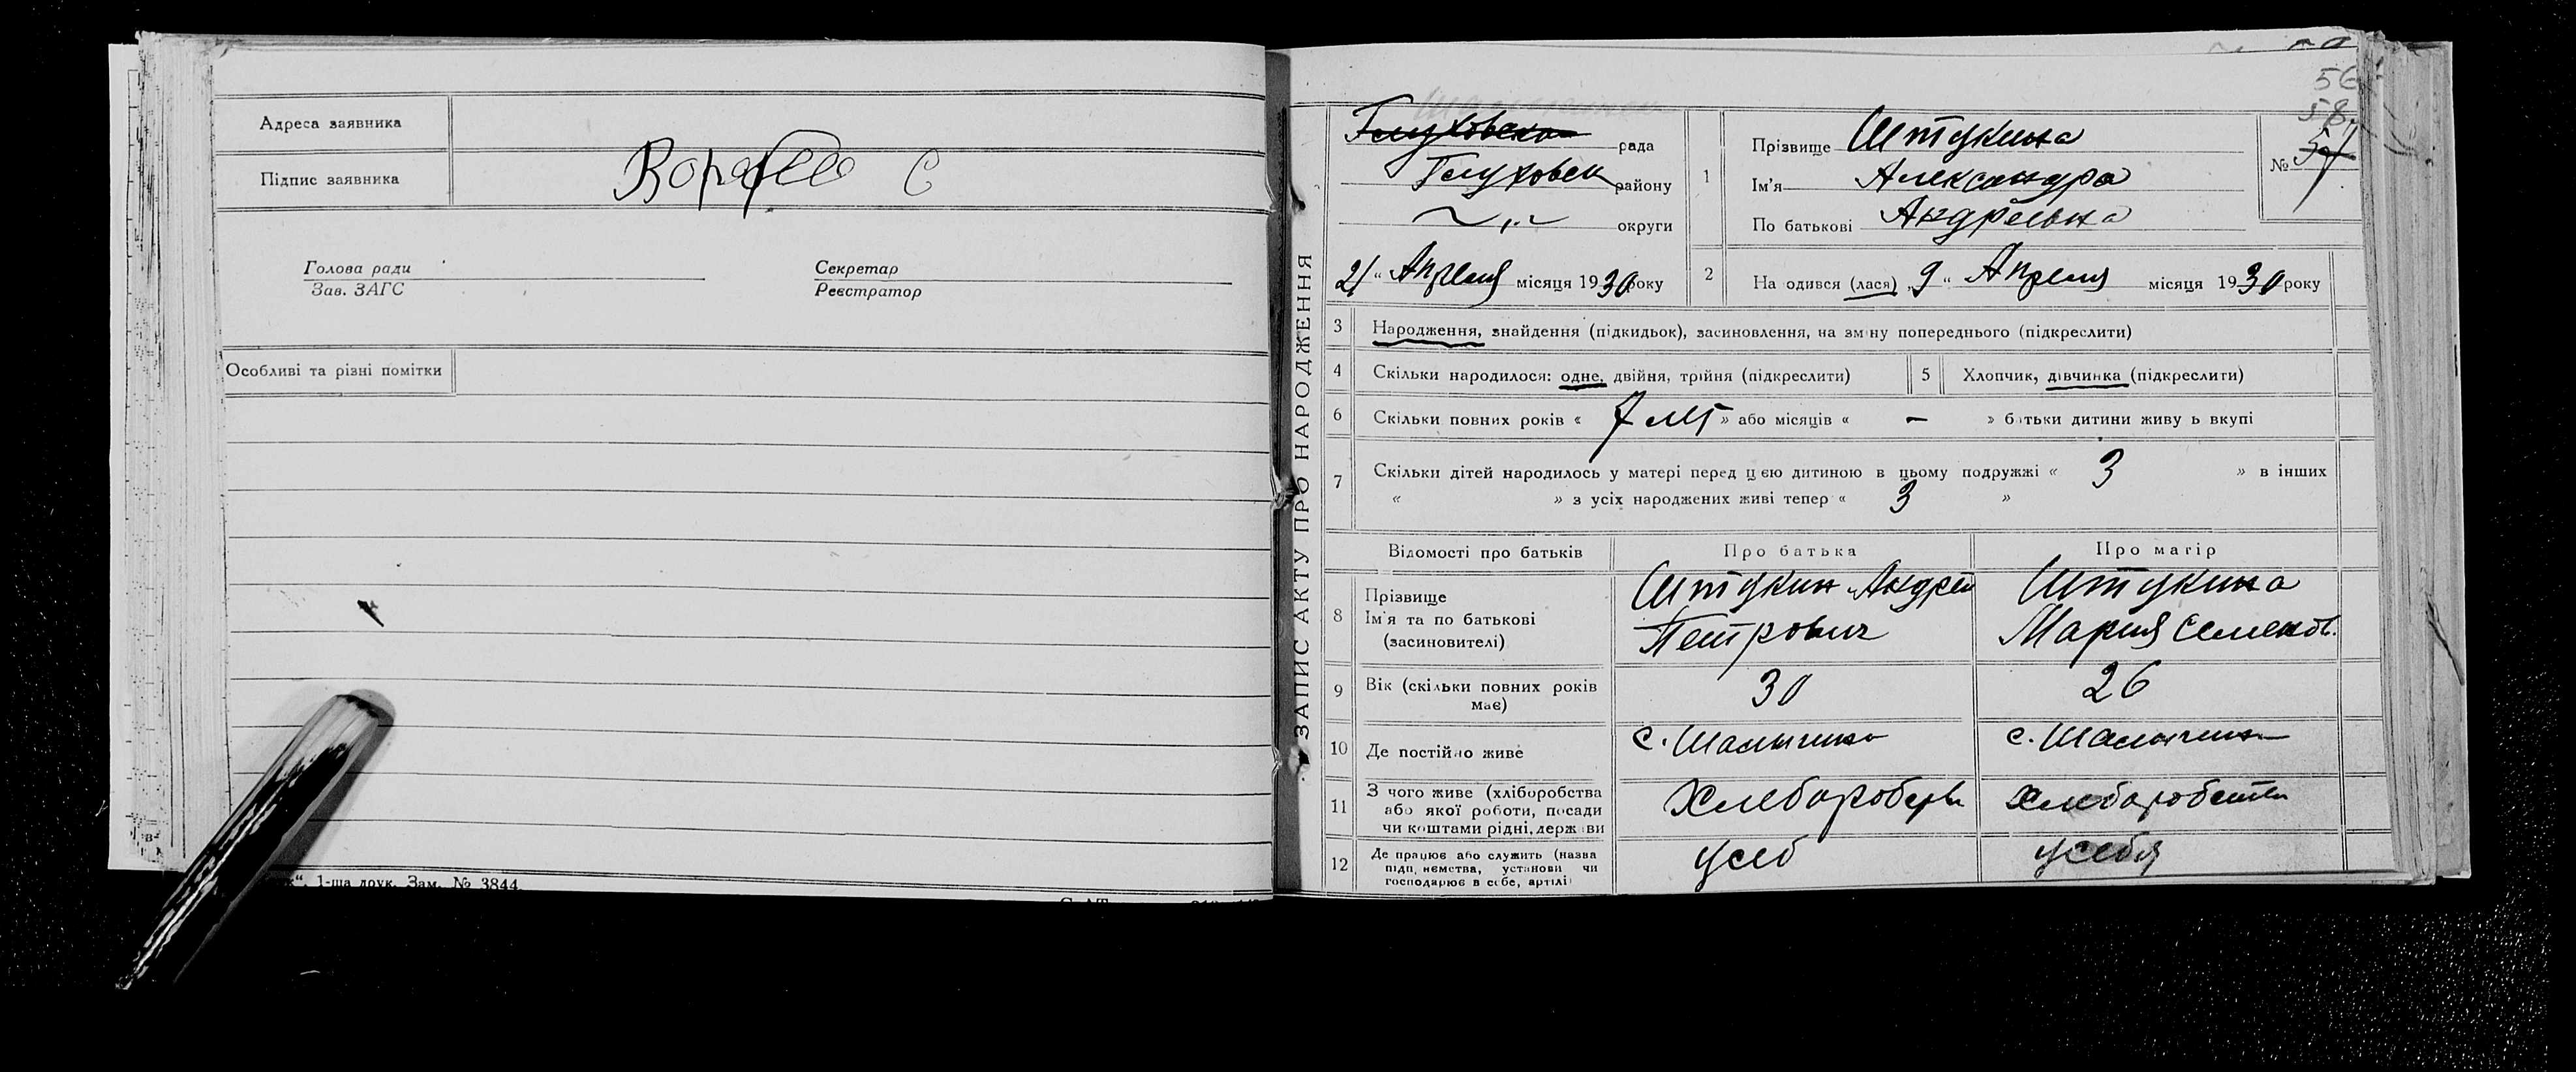 Адреса заявника
Підпис заявника
Голова ради
Зав. ЗАГС
Секретар
Реєстратор
Особливі та різні помітки
1-ша друк. Зам. № 3844
ЗАПИС АКТУ ПРО НАРОДЖЕННЯ
56
58
Глуховско рада
Глуховск району
округи
21 " Апреля місяця 1930 року
1
Прізвище Штукина
Ім'я Александра
По батькові Андреевна
№ 57
2
На одився (лася) „9 " Апреля місяця 1930 року
3 Народження, знайдення (підкидьок), засиновлення, на зміну попереднього (підкреслити)
4 Скільки народилося: одне, двійня, трійня (підкреслити) 5 Хлопчик, дівчинка (підкреслити)
6 Скільки повних років « 7 лет » або місяців « — » батьки дитини живу ь вкупі
7 Скільки дітей народилось у матері перед цею дитиною в цьому подружжі « 3 » в інших
« » з усіх народжених живі тепер « 3 »
Відомості про батьків Про батька Про матір
8 Прізвище Ім'я та по батькові (засиновителі)
Штукин Андрей Петрович
Штукина Мария Семенов.
9 Вік (скільки повних років має) 30 26
10 Де постійно живе с. Шалыгино с. Шалыгино
11 З чого живе (хліборобства
або якої роботи, посади
чи коштами рідні, держави
Хлеборобств Хлеборобств
12 Де працює або служить (назва
підп, иємства, установи чи
господарює в себе, артілі)
усеб усебя